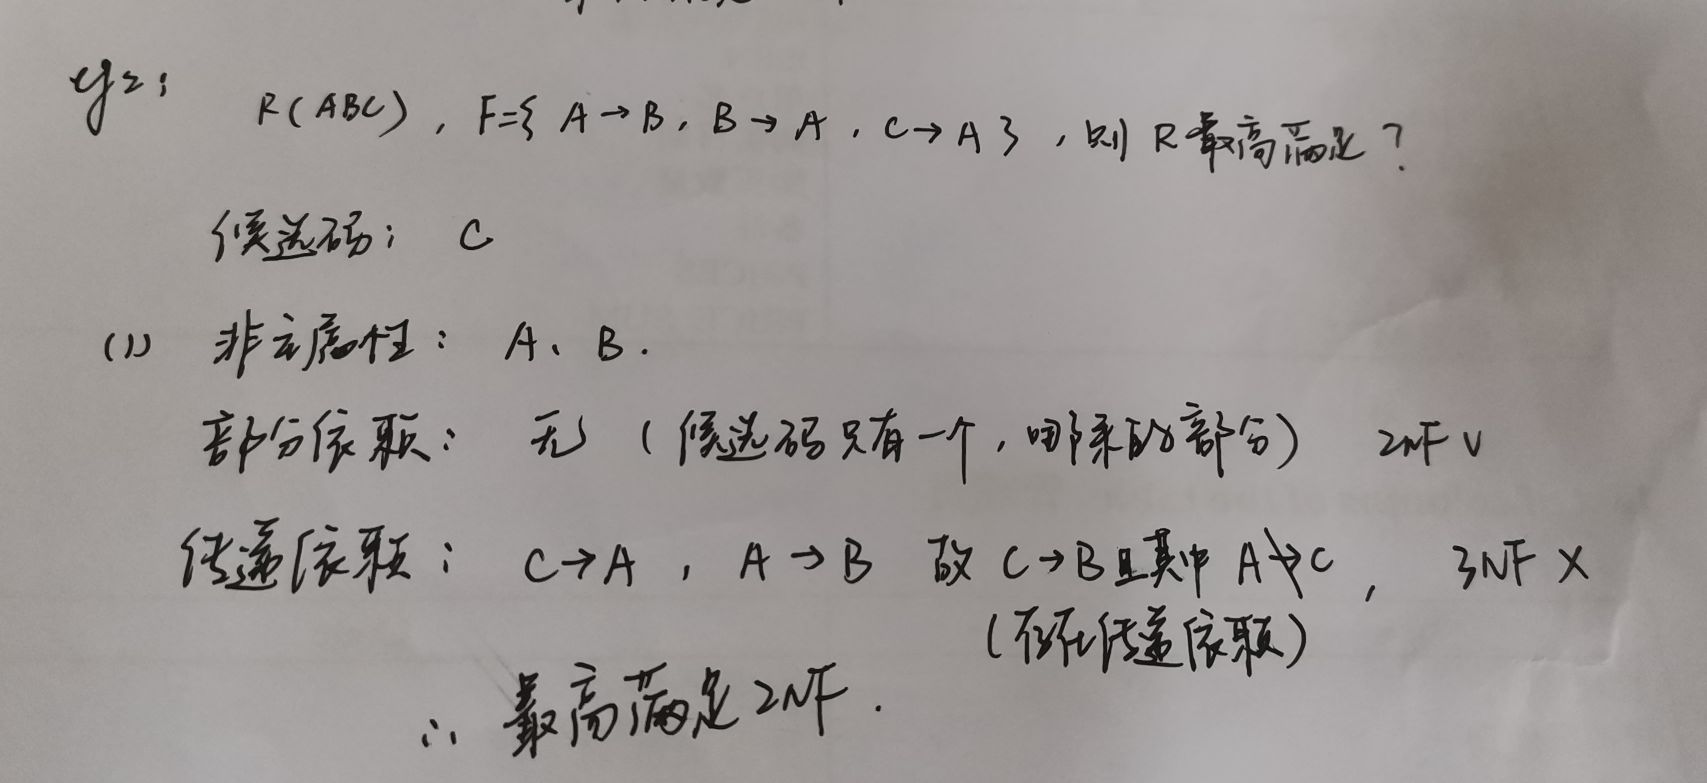 eg2:
R(ABC), F={ A→B, B→A, C→A }, 则 R最高满足?
候选码: C
(1) 非主属性: A、B.
部分依赖: 无 (候选码只有一个, 哪来的部分) 2NF √
传递依赖: C→A, A→B 故 C→B且其中 A↛C, 3NF ×
(存在传递依赖)
∴ 最高满足2NF.